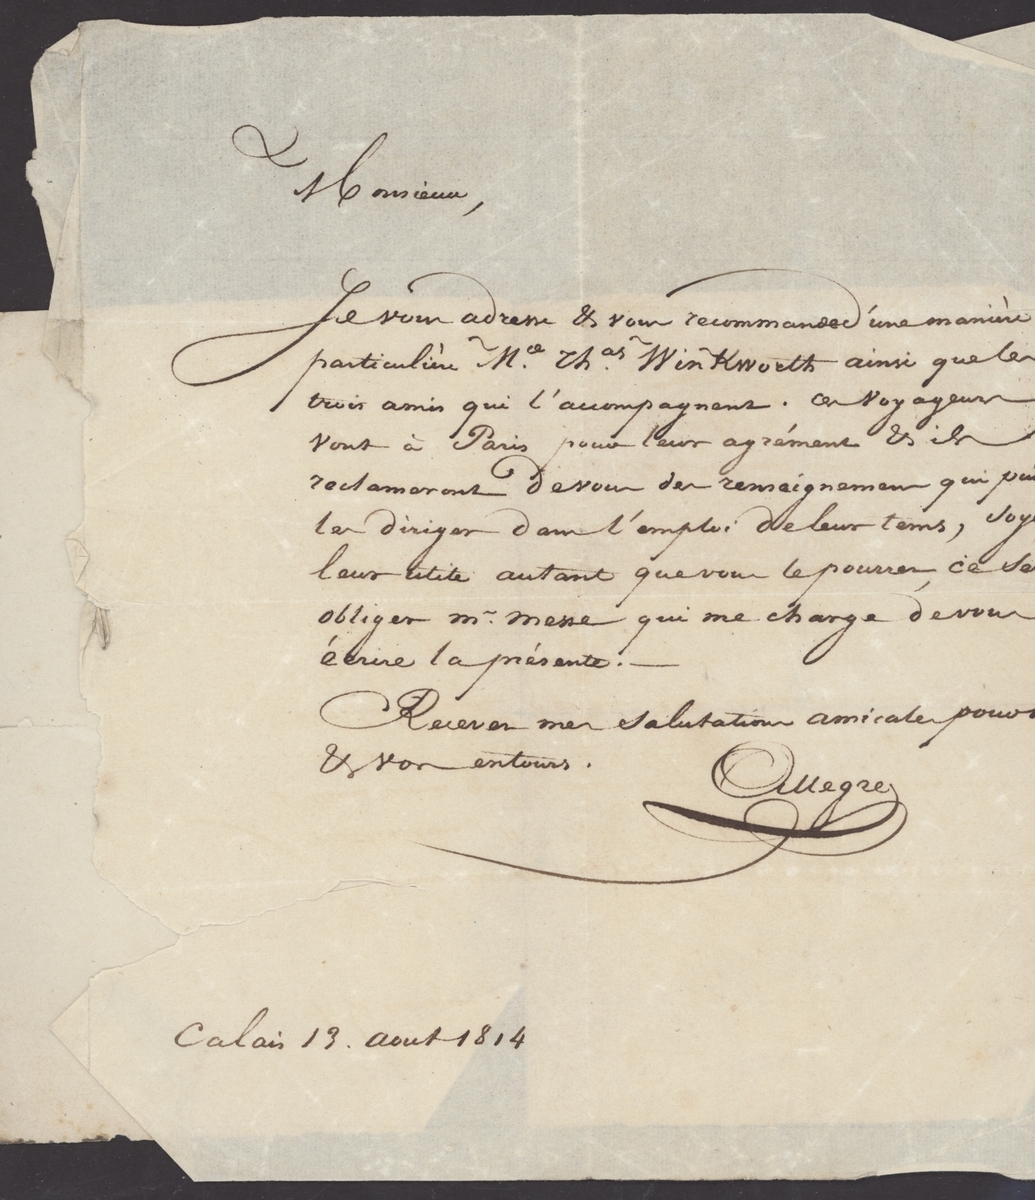 Monsieur,
Je vous adresse & vous recommande d'une manière
particulière Mr. Thas. Winkworth ainsi que les
trois amis qui l'accompagnent. ces voyageurs
vont à Paris pour leur agrément & ils
reclameront de vous des renseignemens qui
les diriger dans l'emploi de leur tems,
leur utile autant que vous le pourrez, ce
obliger mr. messe qui me charge de vous
écrire la présente. —
Recevez mes salutations amicales pour
& vos entours.
Allegre
Calais 13. aout 1814